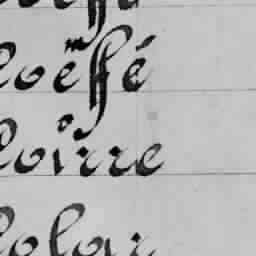 Coëffé
Coirre
Colar